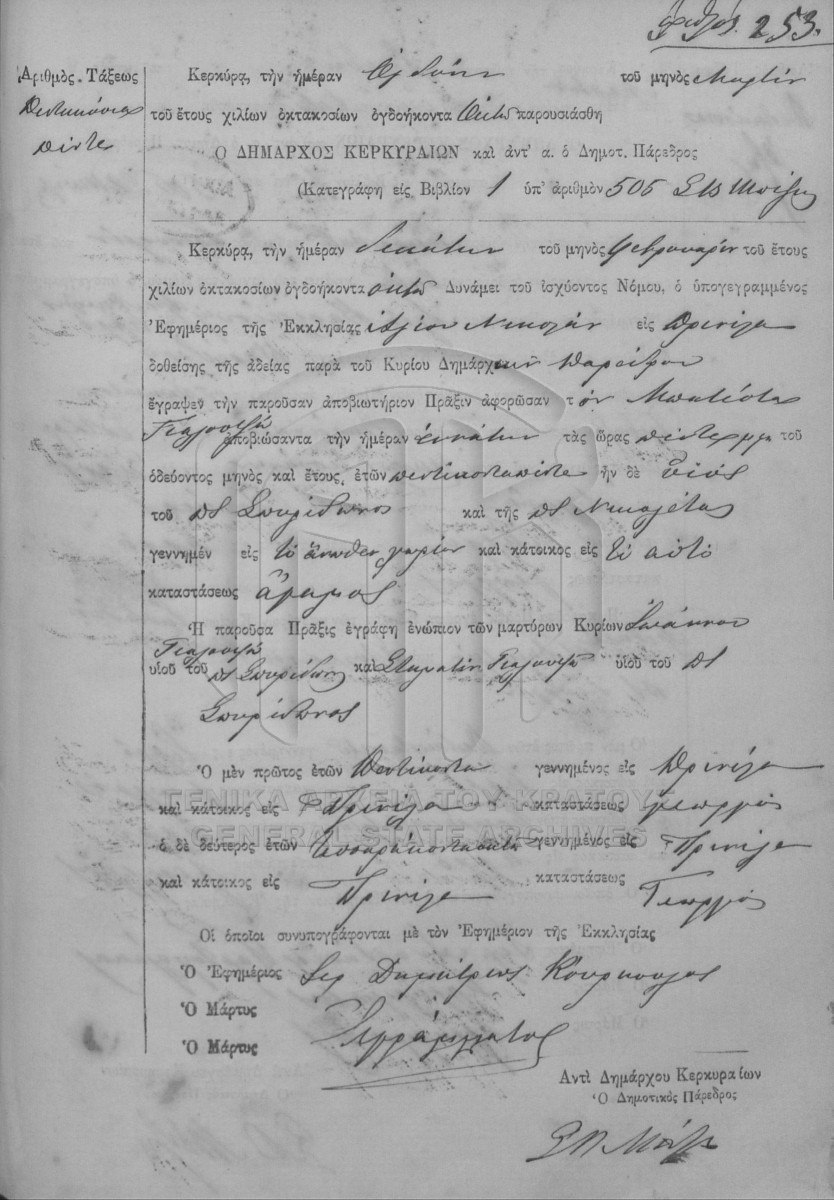 ἀριθμός. 253.
Ἀριθμὸς Τάξεως
Πεντακόσια
πέντε
Κερκύρα, τὴν ἡμέραν Ὀγδόην τοῦ μηνὸς Μαρτίου
τοῦ ἔτους χιλίων ὀκτακοσίων ὀγδοήκοντα Ὀκτὼ παρουσιάσθη
Ὁ ΔΗΜΑΡΧΟΣ ΚΕΡΚΥΡΑΙΩΝ καὶ ἀντ' α. ὁ Δημοτ. Πάρεδρος
(Κατεγράφη εἰς Βιβλίον 1 ὑπ' ἀριθμὸν 505
Κερκύρα, τὴν ἡμέραν δεκάτην τοῦ μηνὸς Φεβρουαρίου τοῦ ἔτους
χιλίων ὀκτακοσίων ὀγδοήκοντα ὀκτὼ Δυνάμει τοῦ ἰσχύοντος Νόμου, ὁ ὑπογεγραμμένος
Ἐφημέριος τῆς Ἐκκλησίας Ἁγίου Νικολάου εἰς Πρινίλα
δοθείσης τῆς ἀδείας παρὰ τοῦ Κυρίου Δημάρχ Παρέδρου
ἔγραψεν τὴν παροῦσαν ἀποβιωτήριον Πρᾶξιν ἀφορῶσαν τὸν Μπατίστα
Γιαλοψὸ
ἀποβιώσαντα τὴν ἡμέραν ἐννάτην τὰς ὥρας πέντε μμ τοῦ
ὁδεύοντος μηνὸς καὶ ἔτους, ἐτῶν πεντήκοντα πέντε ἦν δὲ υἱὸς
τοῦ πτ Σπυρίδωνος καὶ τῆς πτ Νικολέτας
γεννημέν εἰς τὸ ἄνωθεν χωρίον καὶ κάτοικος εἰς τὸ αὐτὸ
καταστάσεως ἄγαμος
Ἡ παροῦσα Πρᾶξις ἐγράφη ἐνώπιον τῶν μαρτύρων Κυρίων Ἰωάννου
Γιαλοψὸ
υἱοῦ τοῦ πτ Σπυρίδωνος καὶ Σταματίου Γιαλοψὸ υἱοῦ τοῦ πτ
Σπυρίδωνος
Ὁ μὲν πρῶτος ἐτῶν Πεντήκοντα γεννημένος εἰς Πρινίλα
καὶ κάτοικος εἰς Πρινίλα καταστάσεως γεωργὸς
ὁ δὲ δεύτερος ἐτῶν τεσσαράκοντα γεννημένος εἰς Πρινίλα
καὶ κάτοικος εἰς Πρινίλα καταστάσεως Γεωργὸς
Οἱ ὁποῖοι συνυπογράφονται μὲ τὸν Ἐφημέριον τῆς Ἐκκλησίας
Ὁ Ἐφημέριος Ιερ Δημήτριος
Ὁ Μάρτυς
Ὁ Μάρτυς Ἀγράμματος
Ἀντὶ Δημάρχου Κερκυραίων
Ὁ Δημοτικὸς Πάρεδρος
ΓΕΝΙΚΑ ΑΡΧΕΙΑ ΤΟΥ ΚΡΑΤΟΥΣ
GENERAL STATE ARCHIVES